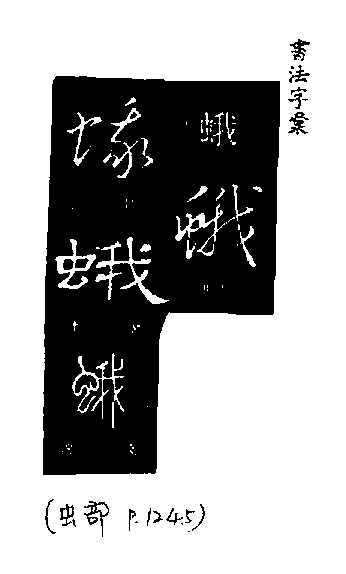 書法字彙
蛾
蛾
蛾
蛾
蛾
(虫部 P.1245)